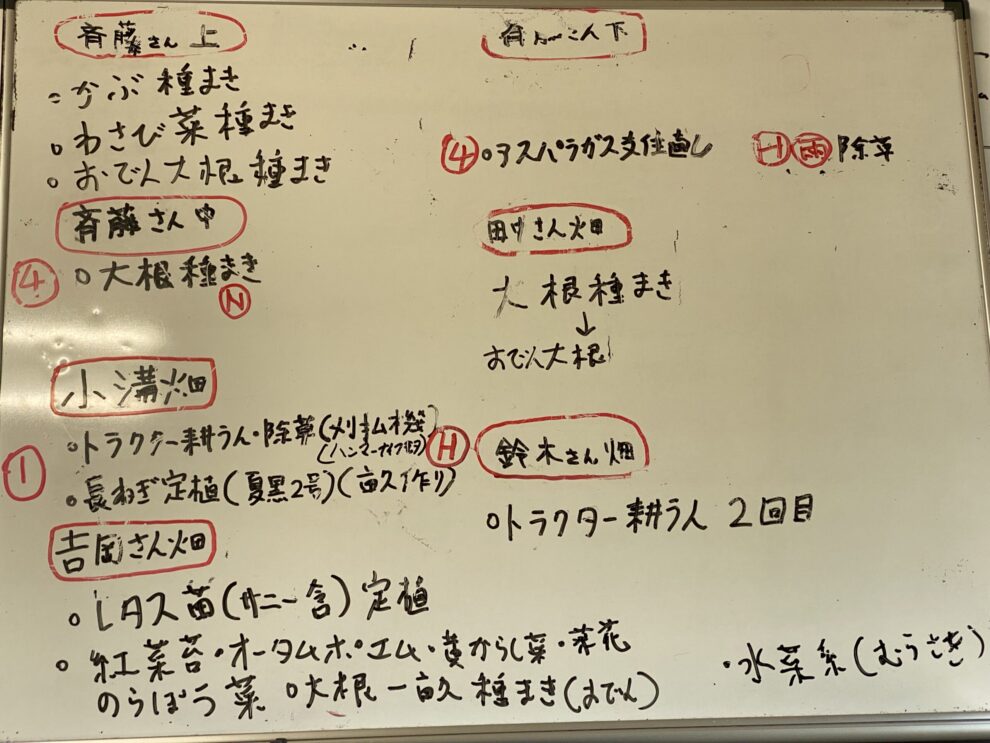 斉藤さん 上
○かぶ種まき
○わさび菜種まき
○おでん大根種まき
斉藤さん 中
④ ○大根種まき
Ⓝ
小溝畑
○トラクター耕うん・除草(刈払機)
(ハンマーナイフ)
①
○長ねぎ定植(夏黒2号)(畝作り)
吉岡さん畑
○レタス苗(サニー含)定植
○紅菜苔・オータムポエム・黄からし菜・菜花
のらぼう菜 ○大根一畝種まき(おでん)
さん 下
④○アスパラガス支柱直し Ⓗ ㊌ 除草
田中さん畑
大根種まき
↓
おでん大根
Ⓗ 鈴木さん畑
○トラクター耕うん 2回目
・水菜系(むらさき)